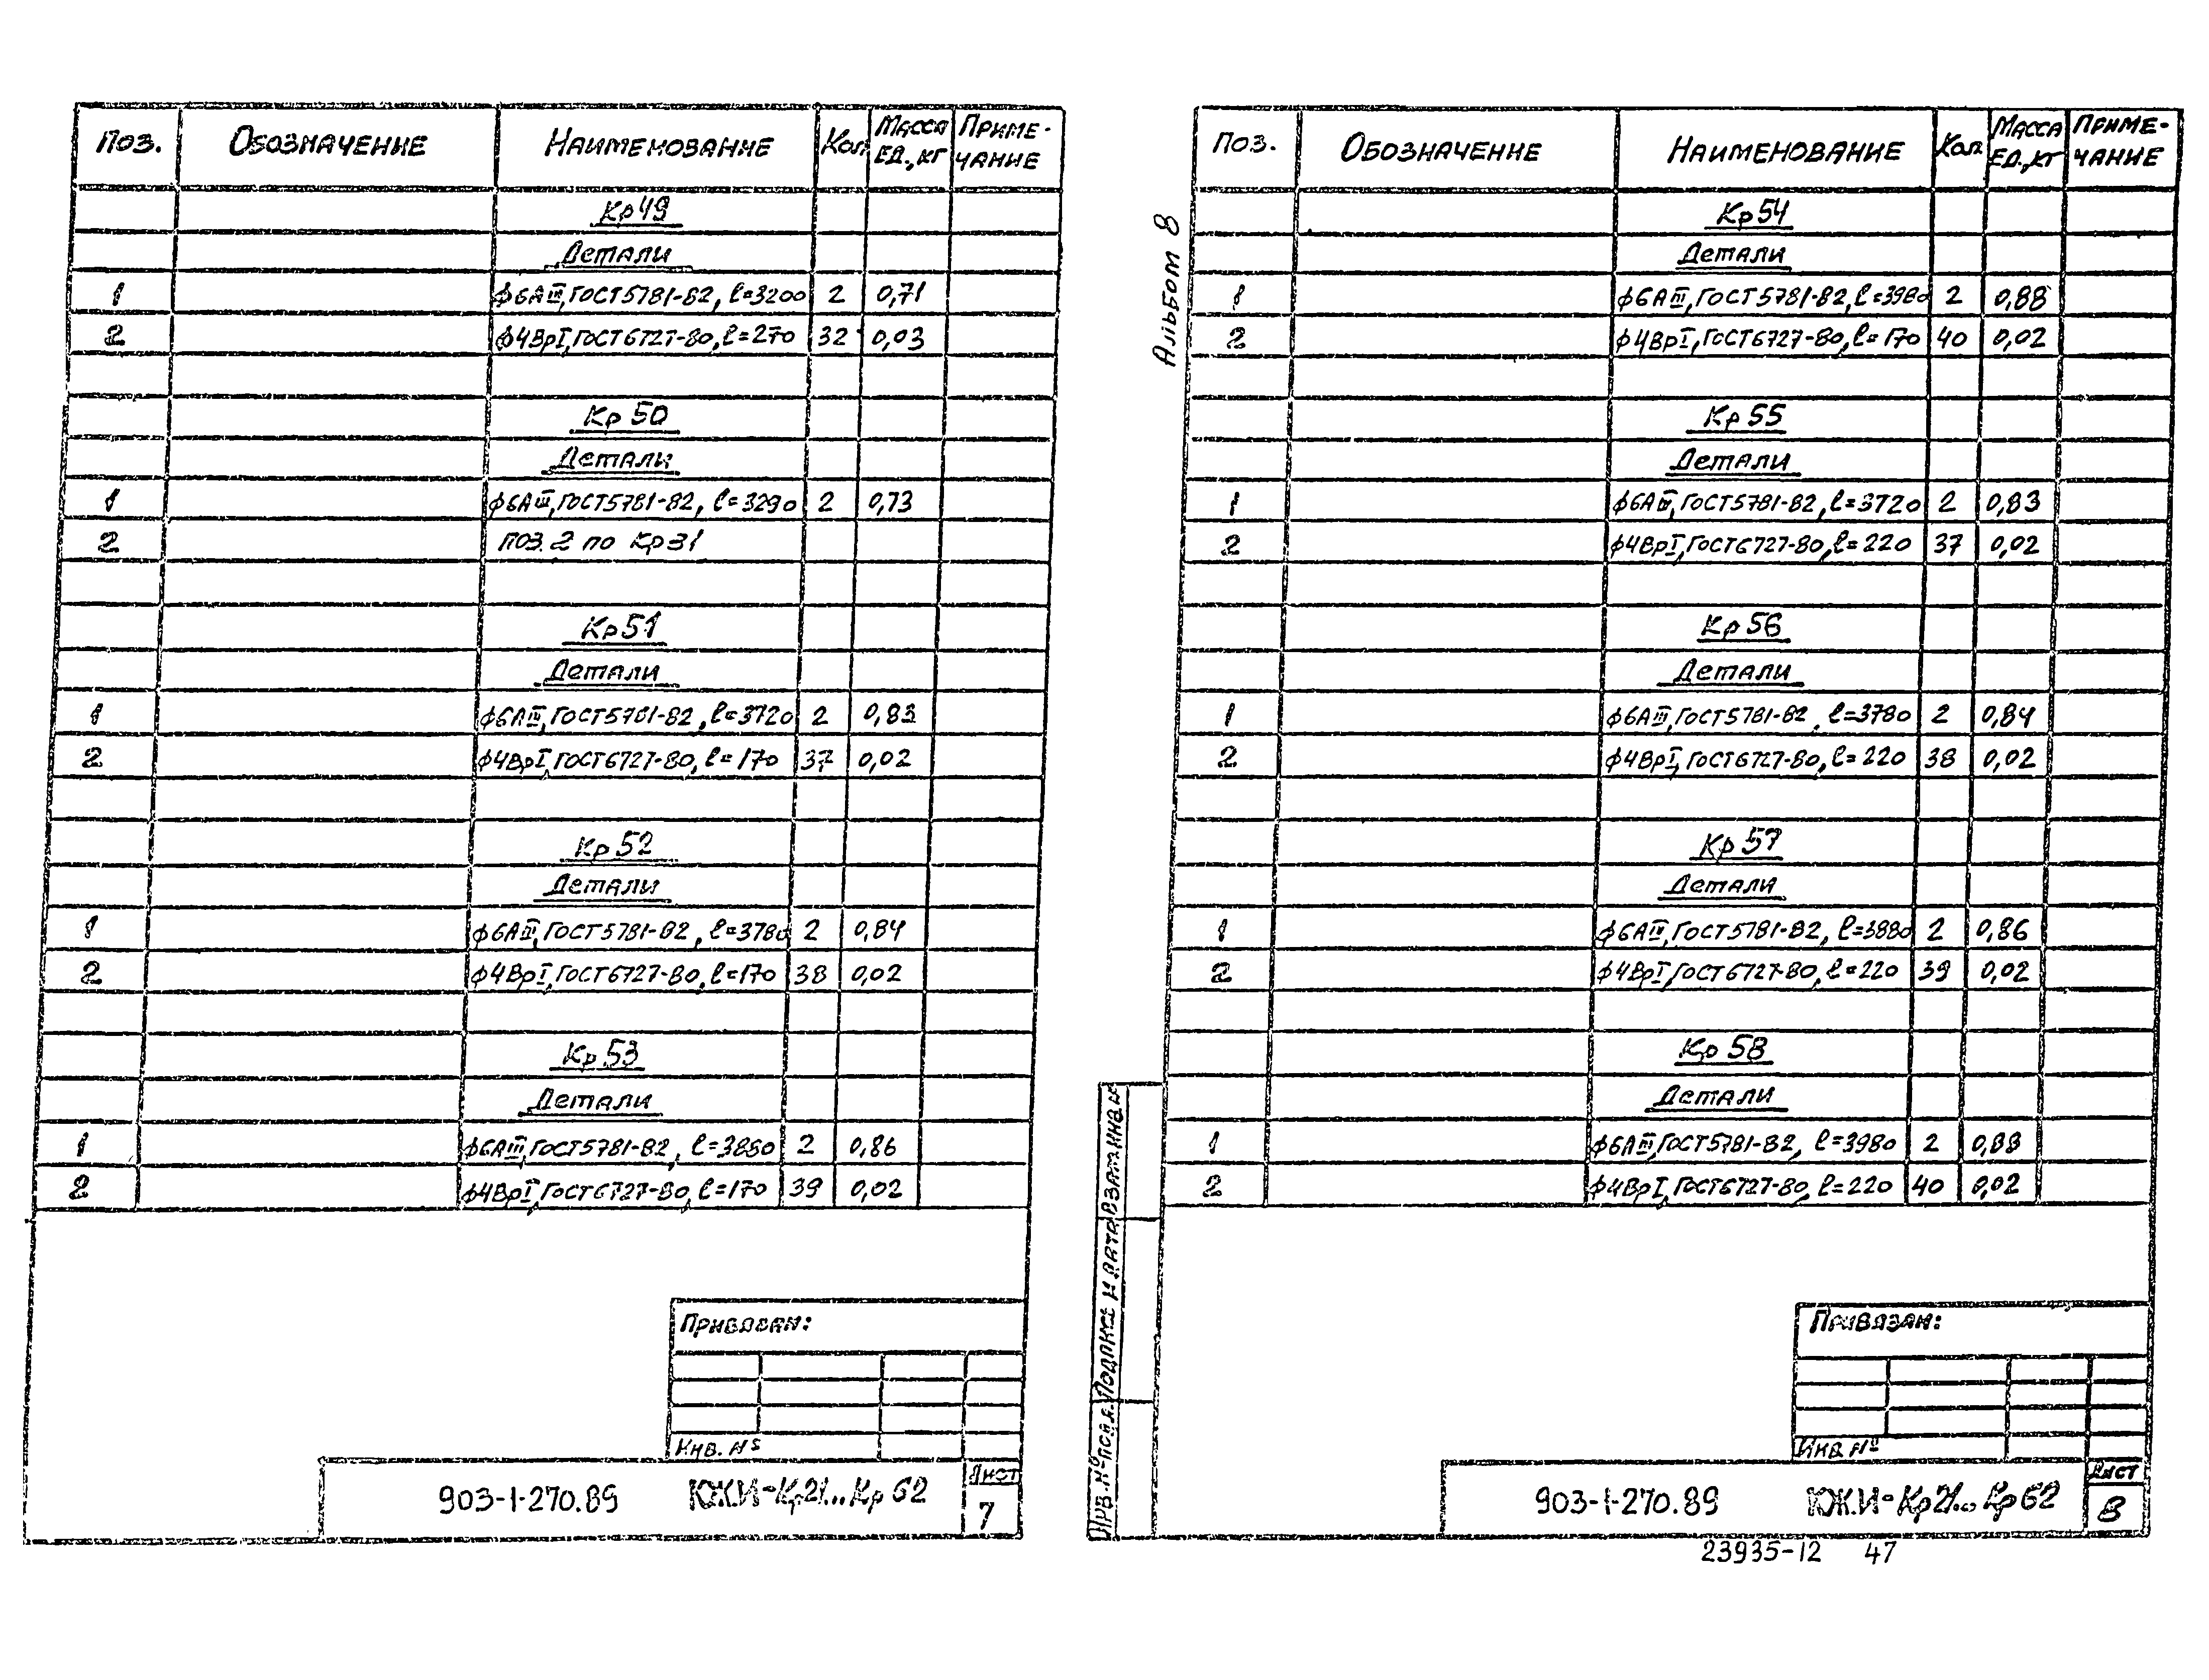 Поз. Обозначение Наименование Кол. Масса ед., кг Приме-чание
Кр 49
Детали
1 ф6АIII, ГОСТ 5781-82, l=3200 2 0,71
2 ф4ВрI, ГОСТ 6727-80, l=270 32 0,03
Кр 50
Детали
1 ф6АIII, ГОСТ 5781-82, l=3290 2 0,73
2 поз. 2 по Кр 31
Кр 51
Детали
1 ф6АIII, ГОСТ 5781-82, l=3720 2 0,83
2 ф4ВрI, ГОСТ 6727-80, l=170 37 0,02
Кр 52
Детали
1 ф6АIII, ГОСТ 5781-82, l=3780 2 0,84
2 ф4ВрI, ГОСТ 6727-80, l=170 38 0,02
Кр 53
Детали
1 ф6АIII, ГОСТ 5781-82, l=3880 2 0,86
2 ф4ВрI, ГОСТ 6727-80, l=170 39 0,02
Привязан:
Инв. №
903-1-270.89 КЖИ-Кр21...Кр 62
Лист
7
Альбом 8
Поз. Обозначение Наименование Кол. Масса ед., кг Приме-чание
Кр 54
Детали
1 ф6АIII, ГОСТ 5781-82, l=3980 2 0,88
2 ф4ВрI, ГОСТ 6727-80, l=170 40 0,02
Кр 55
Детали
1 ф6АIII, ГОСТ 5781-82, l=3720 2 0,83
2 ф4ВрI, ГОСТ 6727-80, l=220 37 0,02
Кр 56
Детали
1 ф6АIII, ГОСТ 5781-82, l=3780 2 0,84
2 ф4ВрI, ГОСТ 6727-80, l=220 38 0,02
Кр 57
Детали
1 ф6АIII, ГОСТ 5781-82, l=3880 2 0,86
2 ф4ВрI, ГОСТ 6727-80, l=220 39 0,02
Кр 58
Детали
1 ф6АIII, ГОСТ 5781-82, l=3980 2 0,88
2 ф4ВрI, ГОСТ 6727-80, l=220 40 0,02
Инв. № подл. Подпись и дата Взам. инв. №
Привязан:
Инв. №
903-1-270.89 КЖИ-Кр21...Кр 62
Лист
8
23935-12 47